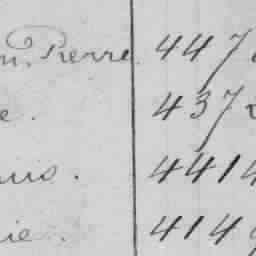 n, Pierre. 447
e. 437
ns. 4414
ie. 414